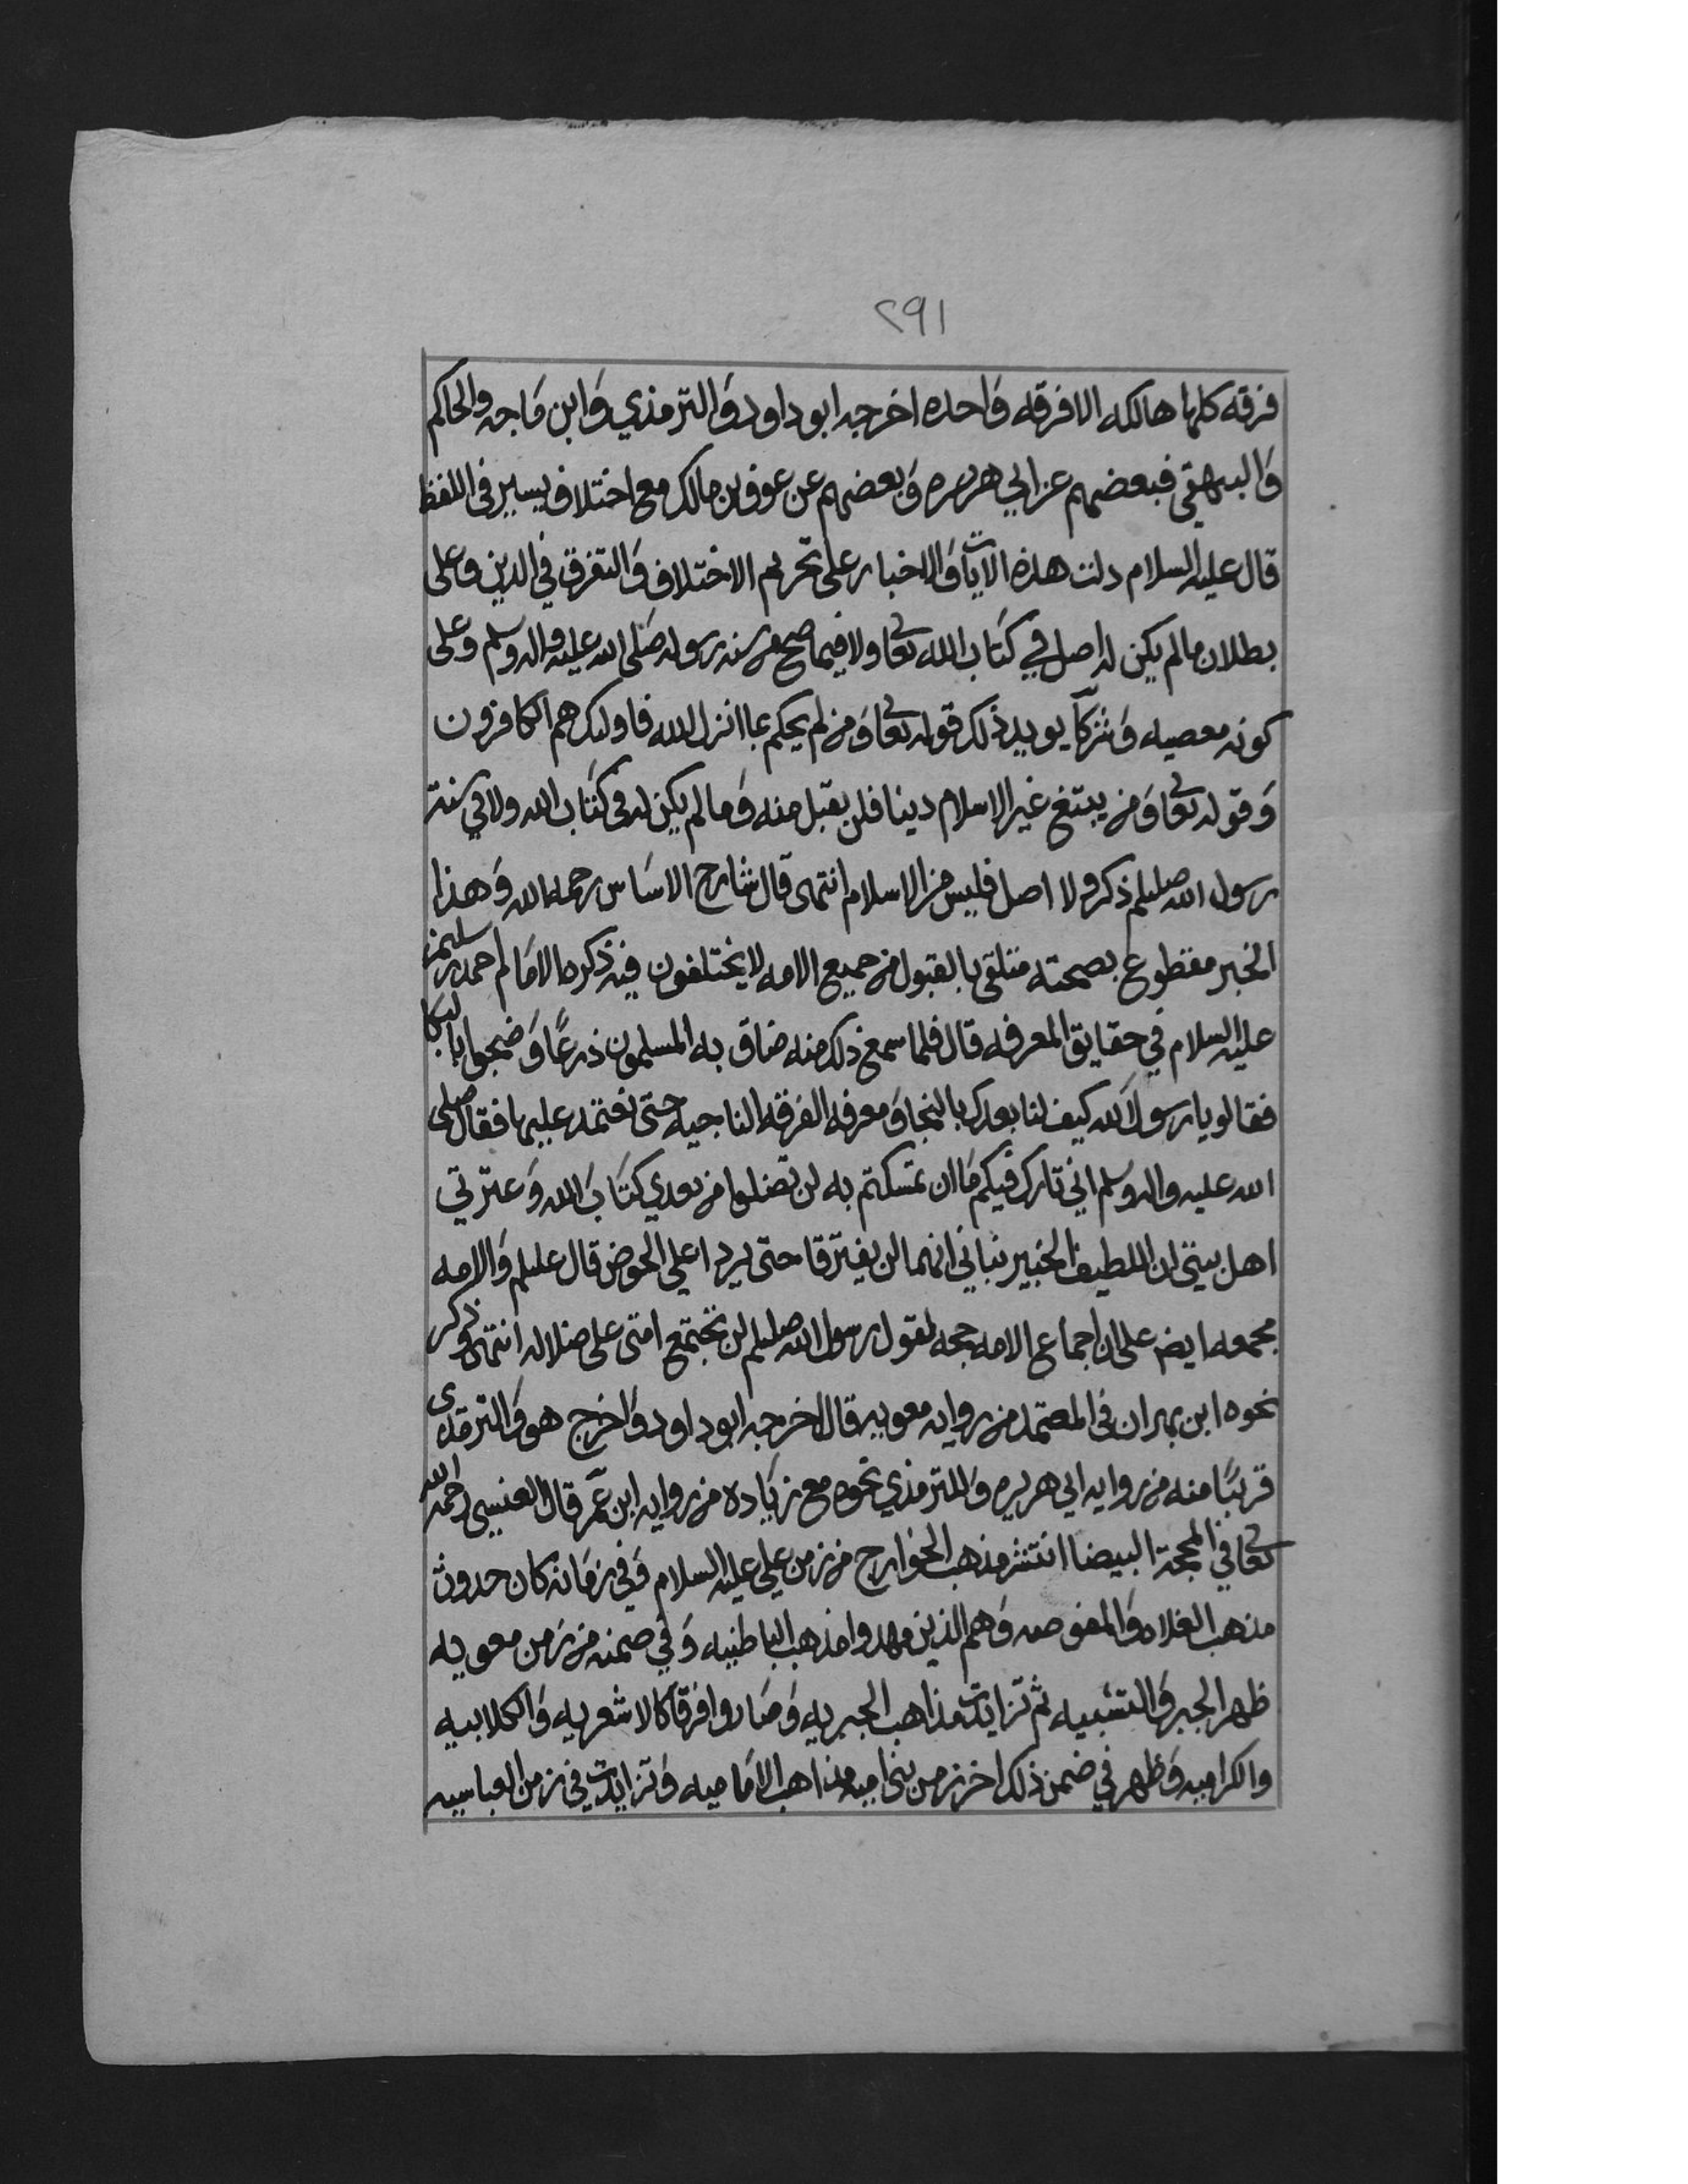 ٢٩١
فرقه كلها هالكه الا فرقه واحده اخرجه ابو داود والترمذي وابن ماجه والحاكم
والبيهقي فبعضهم عن ابي هريره وبعضهم عن عوف بن مالك مع اختلاف يسير في اللفظ
قال عليه السلام دلت هذه الايات والاخبار على تحريم الاختلاف والتفرق في الدين وعلى
بطلان مالم يكن له اصل في كتاب الله تعا ولا فيما صح من سنه رسوله صلى الله عليه واله وسلم وعلى
كونه معصيه وشركًا يويد ذلك قوله تعا ومن لم يحكم بما انزل الله فاولئك هم الكافرون
وقوله تعا ومن يبتغ غير الاسلام دينا فلن يقبل منه وما لم يكن له في كتاب الله ولا في سنة
رسول الله صلعلم ذكر ولا اصل فليس من الاسلام انتهى قال شارح الاساس رحمه الله وهذا
الخبر مقطوع بصحته متلقى بالقبول من جميع الامه لا يختلفون فيه ذكره الامام احمد بن سليمن
عليه السلام في حقايق المعرفه قال فلما سمع ذلك منه ضاق به المسلمون ذرعًا وضجوا بالبكا
فقالو يا رسول الله كيف لنا بعدك بالنجا ومعرفه الفرقه الناجيه حتى نعتمد عليها فقال صلى
الله عليه واله وسلم اني تارك فيكم ما ان تمسكتم به لن تضلوا من بعدي كتاب الله وعترتي
اهل بيتي ان اللطيف الخبير نباني انهما لن يفترقا حتى يردا علي الحوض قال عليلم والامه
مجمعه ايض على ان اجماع الامه حجه لقول رسول الله صلعلم لن تجتمع امتى على ضلاله انتهى وذكر
نحوه ابن بهران في المعتمد من روايه معويه قال اخرجه ابو داود واخرج هو والترمذي
قريبًا منه من روايه ابي هريره وللترمذي نحوه مع زياده من روايه ابن عمر قال العنسي رحمه الله
تعا في المحجة البيضا انتشر مذهب الخوارج من زمن علي عليه السلام وفي زمانه كان حدوث
مذهب الغلاه والمفوضه وهم الذين مهدوا مذهب الباطنيه وفي ضمنه من زمن معويه
ظهر الجبر والتشبيه ثم تزايدت مذاهب الجبريه وصاروا فرقًا كالاشعريه والكلابيه
والكراميه وظهر في ضمن ذلك اخر زمن بني اميه مذاهب الاماميه وتزايدت في زمن العباسيه